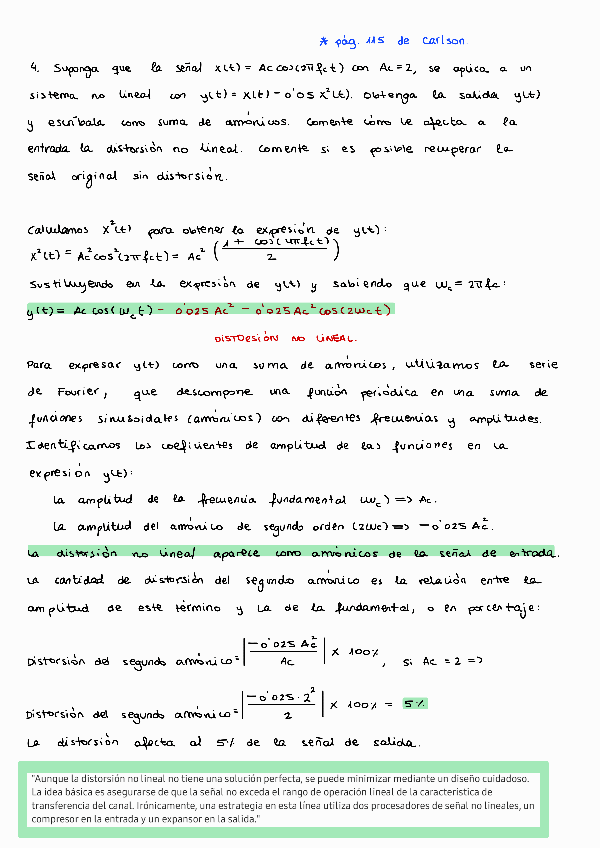 * pág. 115 de Carlson
4. Suponga que la señal x(t) = Ac cos(2πfct) con Ac=2, se aplica a un
sistema no lineal con y(t) = x(t) - 0'05 x²(t). Obtenga la salida y(t)
y escríbala como suma de armónicos. Comente cómo le afecta a la
entrada la distorsión no lineal. Comente si es posible recuperar la
señal original sin distorsión.
Calculamos x²(t) para obtener la expresión de y(t):
x²(t) = Ac² cos²(2πfct) = Ac² ( (1 + cos(4πfct)) / 2 )
Sustituyendo en la expresión de y(t) y sabiendo que ωc = 2πfc:
y(t) = Ac cos(ωct) - 0'025 Ac² - 0'025 Ac² cos(2ωct)
DISTORSIÓN NO LINEAL.
Para expresar y(t) como una suma de armónicos, utilizamos la serie
de Fourier, que descompone una función periódica en una suma de
funciones sinusoidales (armónicos) con diferentes frecuencias y amplitudes.
Identificamos los coeficientes de amplitud de las funciones en la
expresión y(t):
La amplitud de la frecuencia fundamental (ωc) => Ac.
La amplitud del armónico de segundo orden (2ωc) => -0'025 Ac².
La distorsión no lineal aparece como armónicos de la señal de entrada.
La cantidad de distorsión del segundo armónico es la relación entre la
amplitud de este término y la de la fundamental, o en porcentaje:
Distorsión del segundo armónico = | -0'025 Ac² / Ac | x 100%, si Ac = 2 =>
Distorsión del segundo armónico = | -0'025 · 2² / 2 | x 100% = 5%
La distorsión afecta al 5% de la señal de salida.
"Aunque la distorsión no lineal no tiene una solución perfecta, se puede minimizar mediante un diseño cuidadoso.
La idea básica es asegurarse de que la señal no exceda el rango de operación lineal de la característica de
transferencia del canal. Irónicamente, una estrategia en esta línea utiliza dos procesadores de señal no lineales, un
compresor en la entrada y un expansor en la salida."